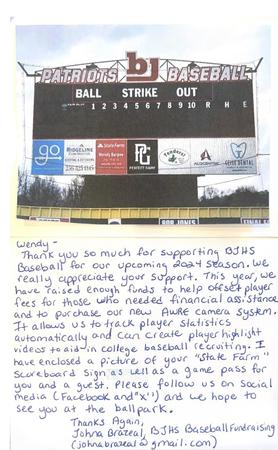 PATRIOTS bj BASEBALL
BALL STRIKE OUT
1 2 3 4 5 6 7 8 9 10 R H E
go
RIDGELINE
State Farm
Wendy Burgee
PG
PERFECT GAME
BOB JONES
Wendy-
Thank you so much for supporting BJHS
Baseball for our upcoming 2024 season. We
really appreciate your support. This year, we
have raised enough funds to help offset player
fees for those who needed financial assistance
and to purchase our new AWRE camera system.
It allows us to track player statistics
automatically and can create player highlight
videos to aid in college baseball recruiting. I
have enclosed a picture of your "State Farm"
Scoreboard sign as well as a game pass for
you and a guest. Please follow us on Social
media (Facebook and "X") and we hope to
see you at the ballpark.
Thanks Again,
Johna Brazeal, BJHS Baseball Fundraising
(johnabrazeal@gmail.com)